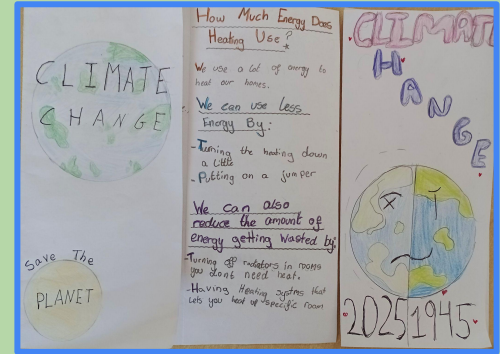 CLIMATE
CHANGE
Save The
PLANET
How Much Energy Does
Heating Use?
We use a lot of energy to
heat our homes.
We can use less
Energy By:
-Turning the heating down
a little
-Putting on a jumper
We can also
reduce the amount of
energy getting wasted by:
-Turning off radiators in rooms
you dont need heat.
-Having Heating systms that
lets you heat up specific room
CLIMATE
CHANGE
2025 1945